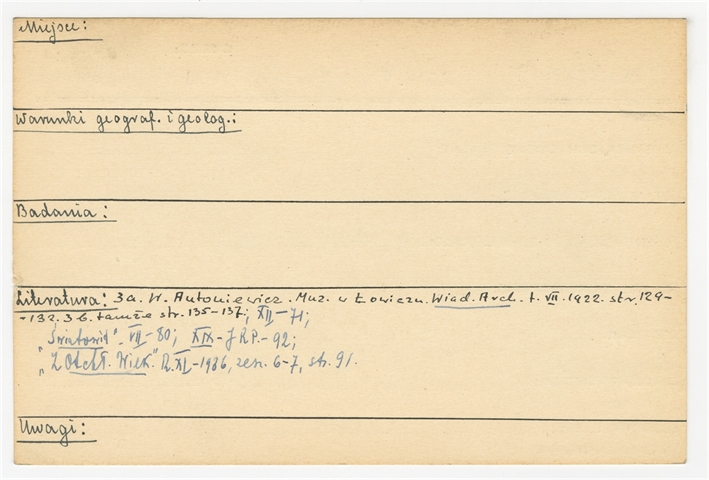 Miejsce:
Warunki geograf. i geolog.:
Badania:
Literatura: 3a. W. Antoniewicz. Muz. w Łowiczu. Wiad. Arch. t. VII. 1922. str. 129-
-132. 3b. tamże str. 135-137; XII-71;
„Światowit". VII-80; XIX-J RP.-92;
„Z Otchł. Wiek." R. XI-1936, zesz. 6-7, str. 91.
Uwagi: